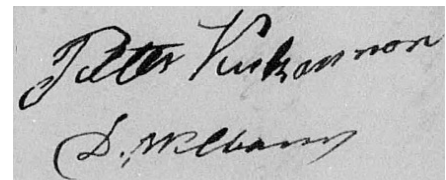 Peter Kuykannon
D. Williams